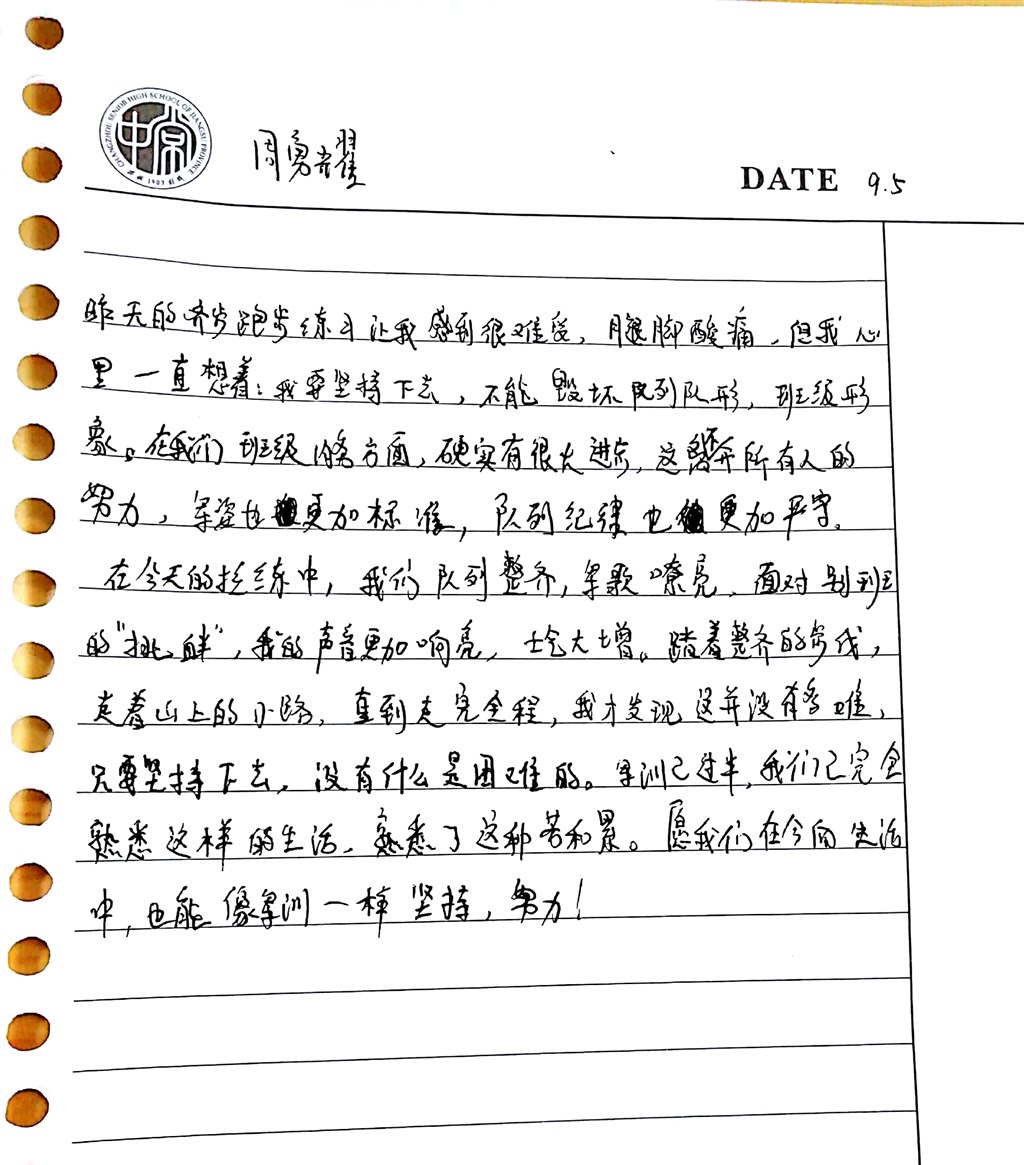 CHANGZHOU SENIOR HIGH SCHOOL OF JIANGSU PROVINCE
1907
周勇耀
DATE 9.5
昨天的齐步跑步练习让我感到很难受,腿脚酸痛,但我心
里一直想着:我要坚持下去,不能毁坏队列队形,班级形
象。在我们班级内务方面,确实有很大进步,这离不开所有人的
努力,军姿也更加标准,队列纪律也更加严守。
在今天的拉练中,我们队列整齐,军歌嘹亮,面对别班
的“挑衅”,我的声音更加响亮,士气大增。踏着整齐的步伐,
走着山上的小路,直到走完全程,我才发现这并没有多难,
只要坚持下去,没有什么是困难的。军训已过半,我们已完全
熟悉这样的生活,熟悉了这种苦和累。愿我们在今后生活
中,也能像军训一样坚持,努力!